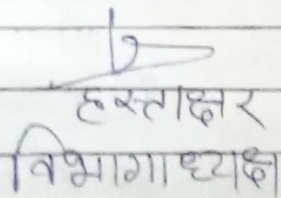 हस्ताक्षर
विभागाध्यक्ष